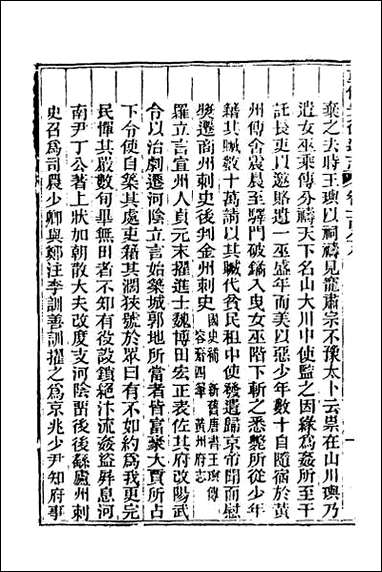 棄之去時王璵以祠禱見寵肅宗不豫太卜云祟在山川璵乃
遣女巫乘傳分禱天下名山大川中使監之因緣為姦所至干
託長吏以邀賂遺一巫盛年而美以惡少年數十自隨宿於黃
州傳舍震晨至驛門破鐍入曳女巫階下斬之悉斃所從少年
藉其贓數十萬請以其贓代貧民租中使發遣歸京帝聞而慰
獎遷商州刺史後判金州刺史
國史補 新舊唐書王璵傳
容齋四筆 黃州府志
羅立言宣州人貞元末擢進士魏博田宏正表佐其府改陽武
令以治劇遷河陰立言始築城郭地所當者皆富豪大賈所占
下令使自築其處吏籍其濶狹號於眾曰有不如約為我更完
民憚其嚴數旬畢無田者不知有役設鎖絕汴流姦盜屏息河
南尹丁公著上狀加朝散大夫改度支河陰留後後繇廬州刺
史召為司農少卿與鄭注李訓善訓擢之為京兆少尹知府事